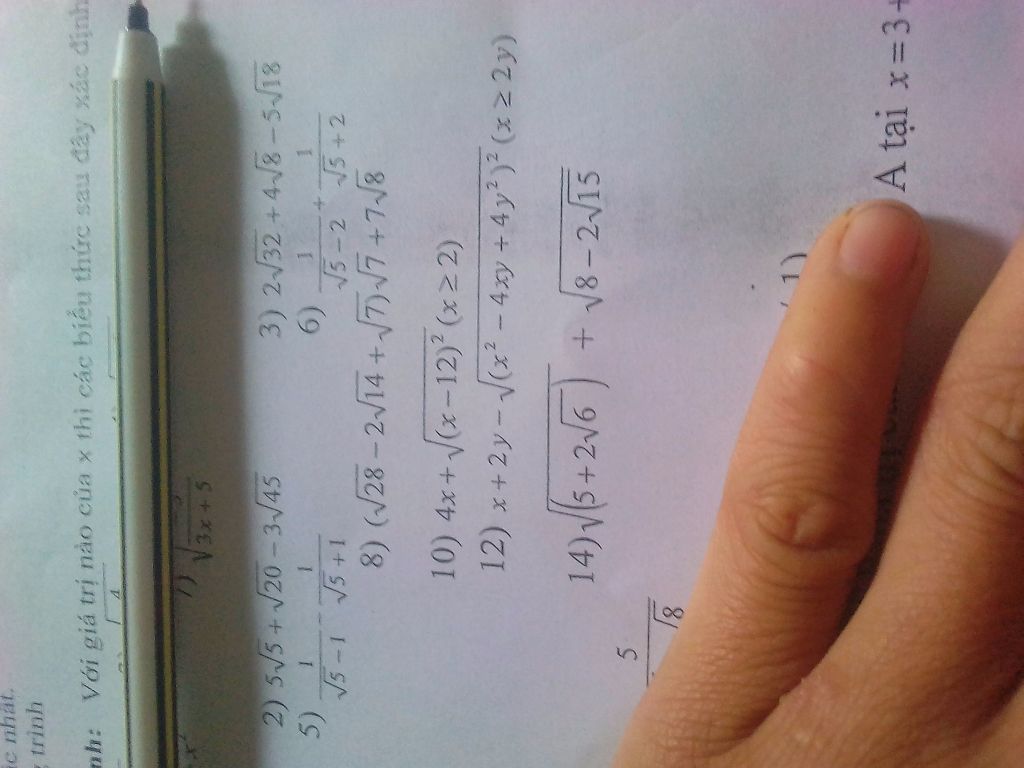 ic nhất.
trình
nh: Với giá trị nào của x thì các biểu thức sau đây xác định
7) √(3x+5)
2) 5√5 + √20 − 3√45 3) 2√32 + 4√8 − 5√18
5) 1/(√5−1) − 1/(√5+1) 6) 1/(√5−2) + 1/(√5+2)
8) (√28 − 2√14 + √7)√7 + 7√8
10) 4x + √((x−12)²) (x ≥ 2)
12) x + 2y − √((x² − 4xy + 4y²)²) (x ≥ 2y)
14) √(5+2√6) + √(8−2√15)
5
√8
A tại x = 3 +